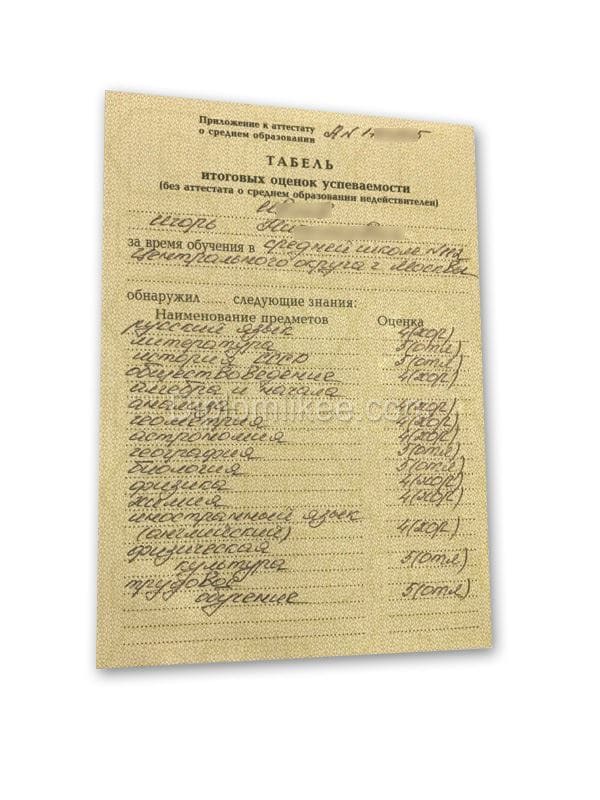 Приложение к аттестату
о среднем образовании
ТАБЕЛЬ
итоговых оценок успеваемости
(без аттестата о среднем образовании недействителен)
Игорь
за время обучения в средней школе N
Центрального округа г. Москвы
обнаружил ..... следующие знания:
Наименование предметов Оценка
русский язык 4(хор)
литература 5(отл)
история СССР 5(отл)
обществоведение 4(хор)
алгебра и начала
анализа 4(хор)
геометрия 4(хор)
астрономия 4(хор)
география 5(отл)
биология 5(отл)
физика 4(хор)
химия 4(хор)
иностранный язык
(английский) 4(хор)
физическая
культура 5(отл)
трудовое
обучение 5(отл)